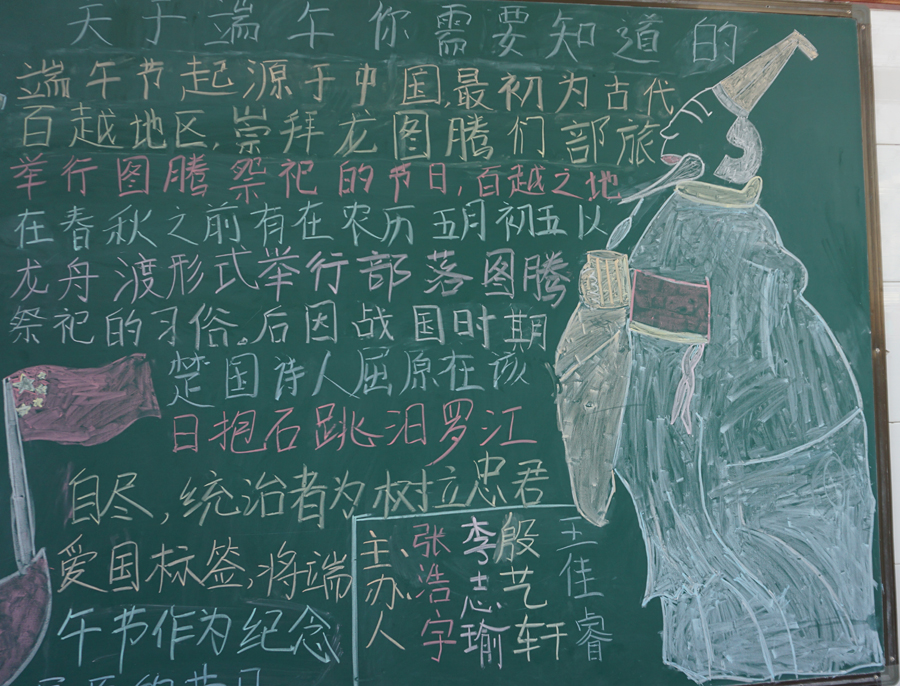 关于端午你需要知道的
端午节起源于中国,最初为古代
百越地区,崇拜龙图腾们部旅
举行图腾祭祀的节日,百越之地
在春秋之前有在农历五月初五以
龙舟渡形式举行部落图腾
祭祀的习俗。后因战国时期
楚国诗人屈原在该
日抱石跳汨罗江
自尽,统治者为树立忠君
爱国标签,将端
午节作为纪念
主、办、人
张浩宇
李志瑜
殷艺轩
王佳睿